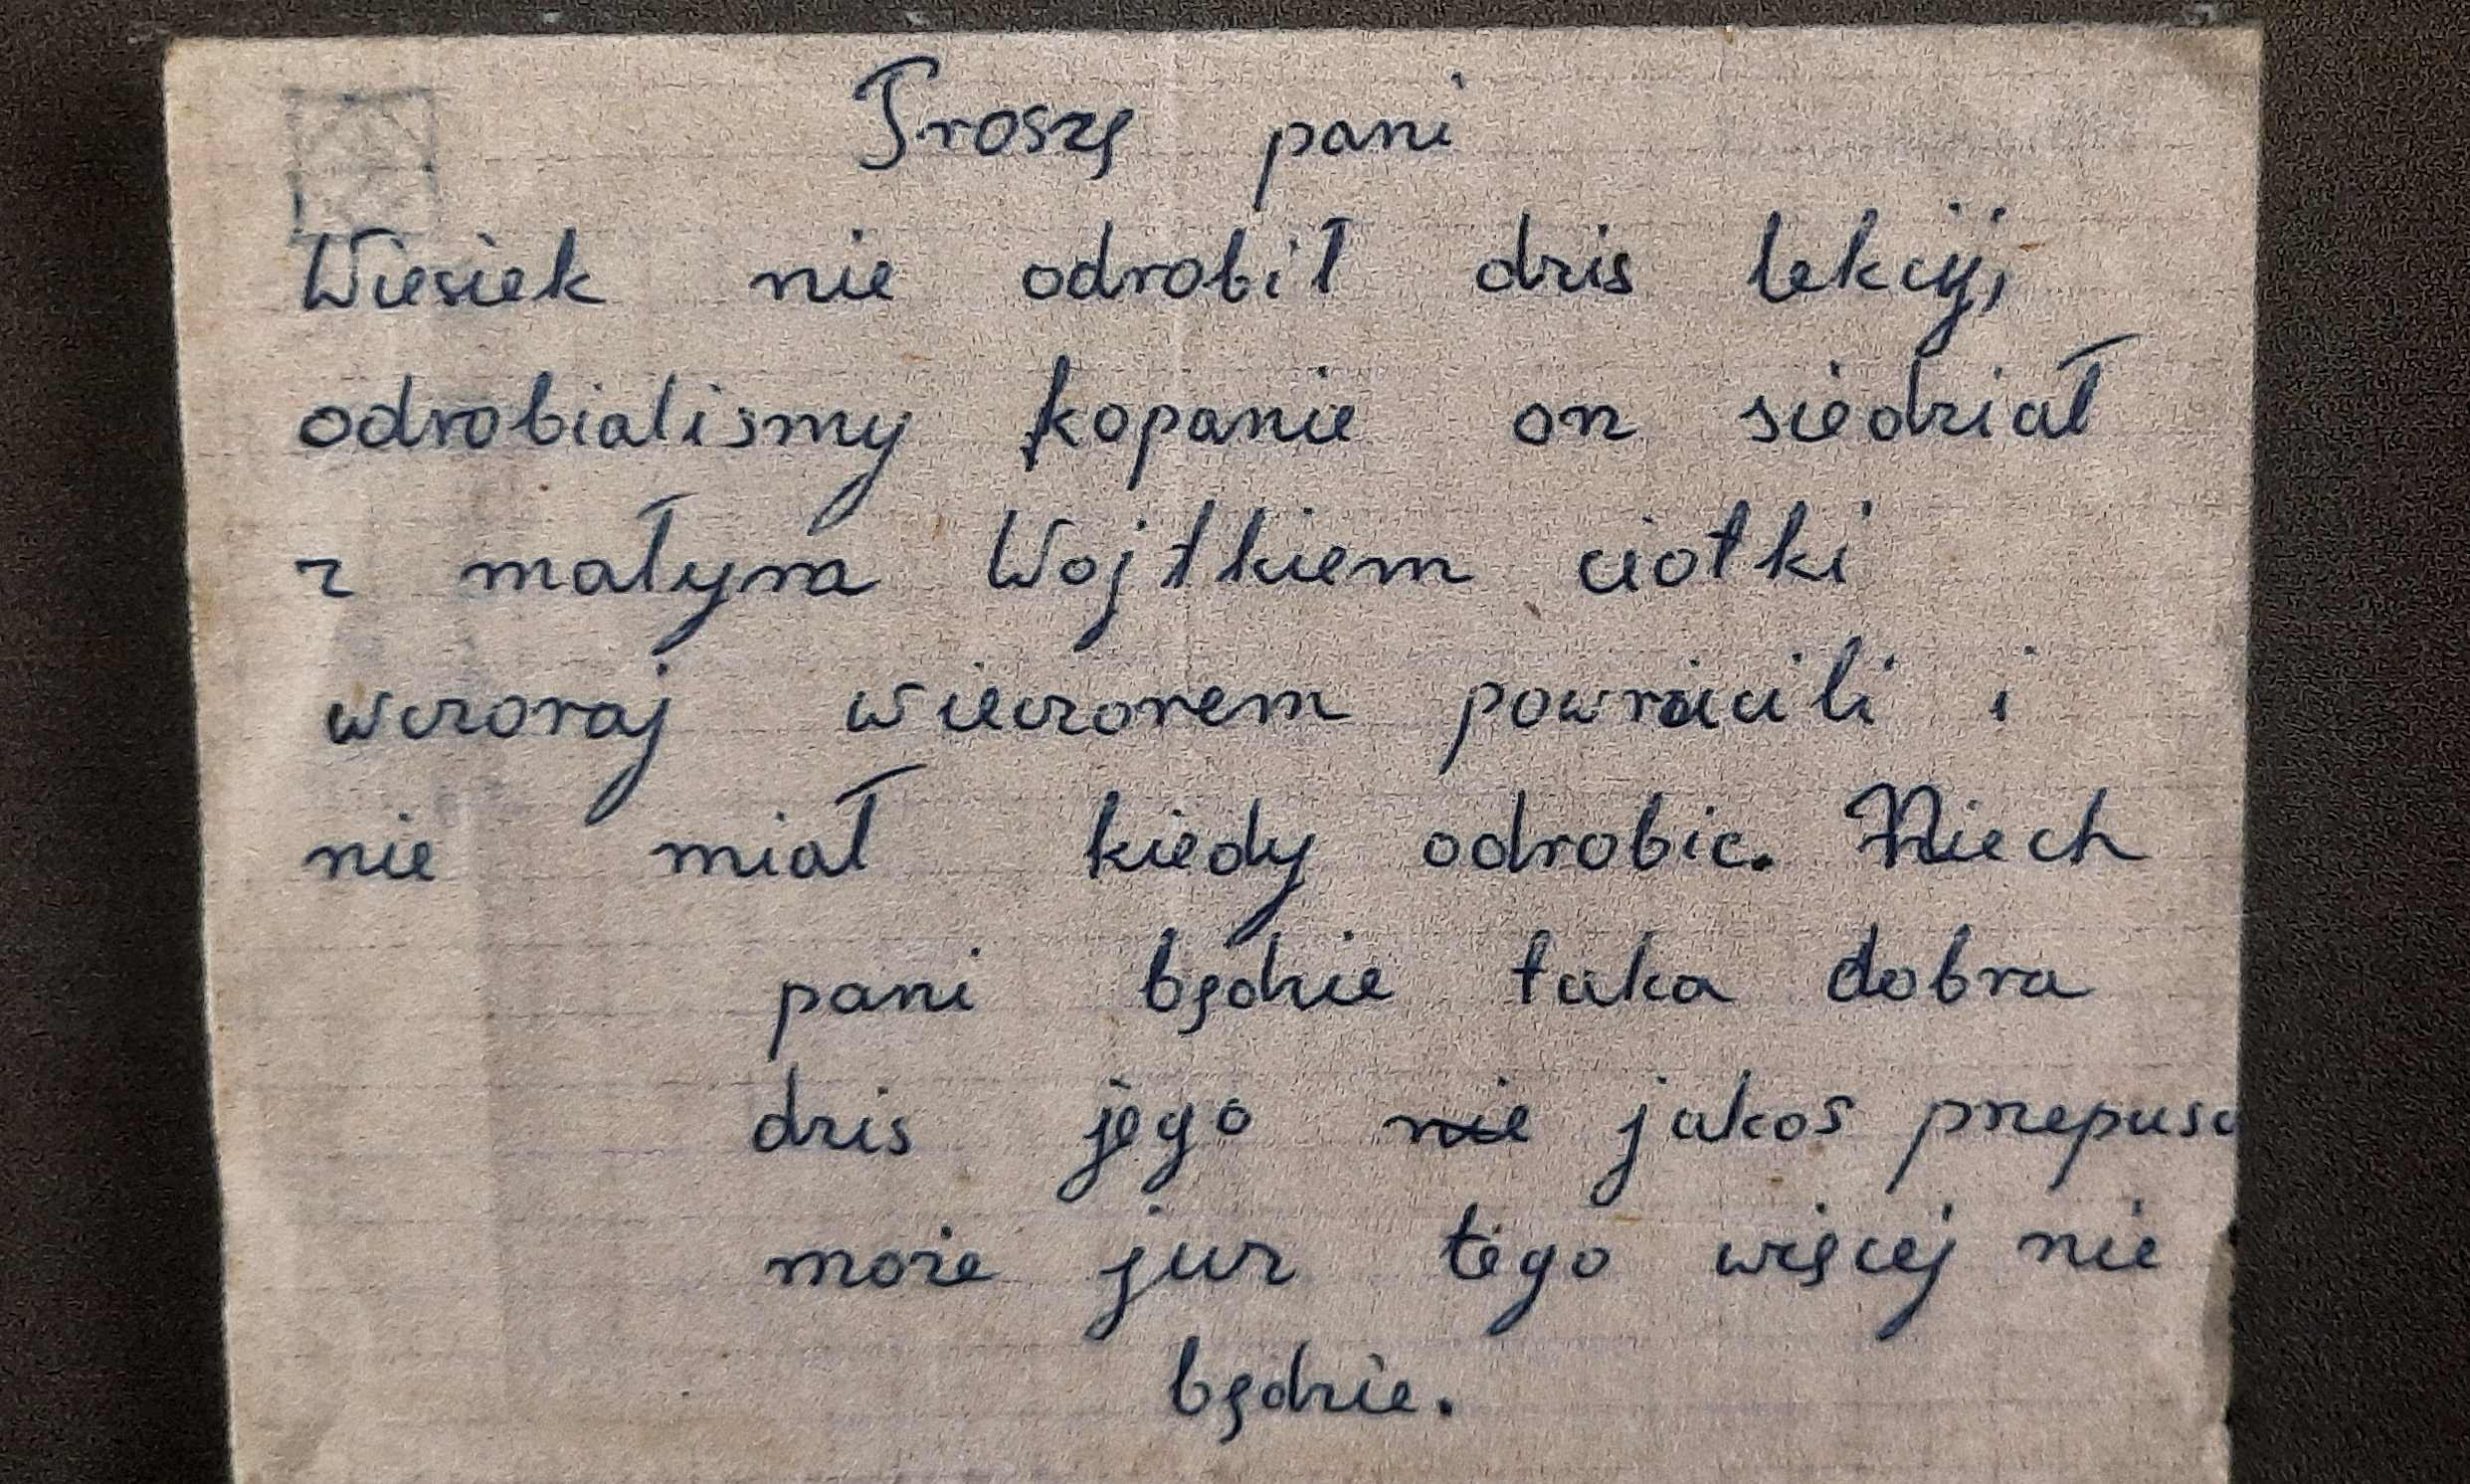 Proszę pani
Wiesiek nie odrobił dzis lekcji,
odrobialismy kopanie on siedział
z małym Wojtkiem ciotki
wczoraj wieczorem powrócili i
nie miał kiedy odrobic. Niech
pani będzie taka dobra
dzis jego nie jakos przepusc
może juz tego więcej nie
będzie.